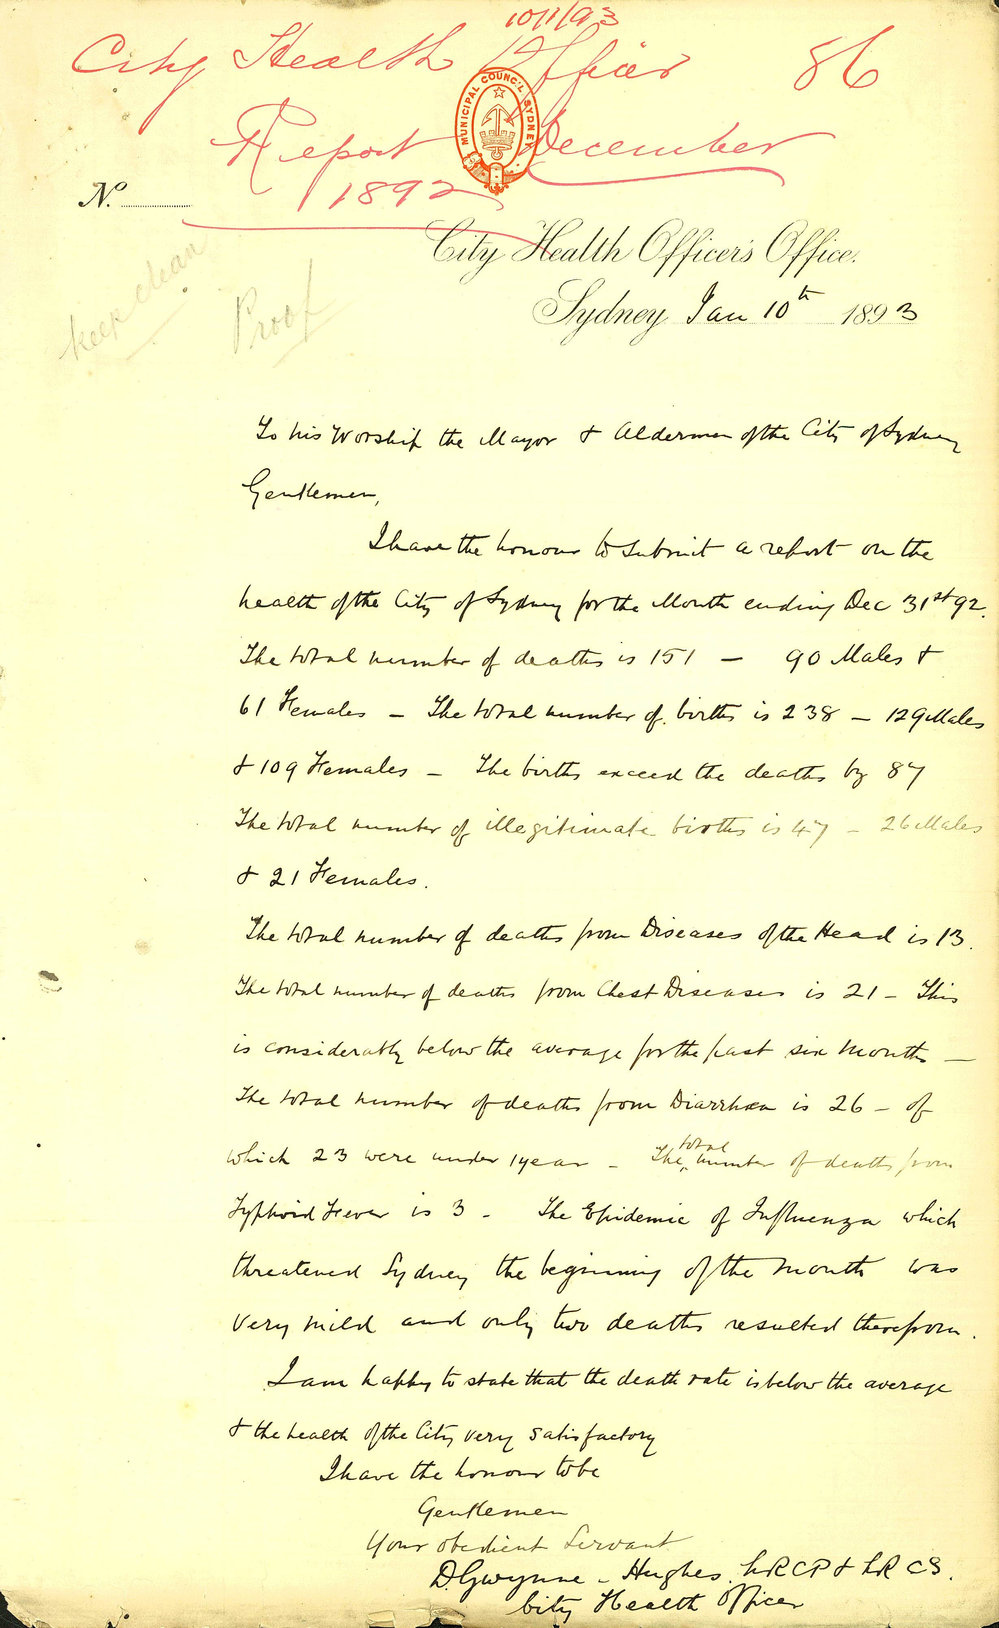 10/1/93
City Health Officer 86
Report December
1892
MUNICIPAL COUNCIL SYDNEY
No.
City Health Officer's Office.
Sydney Jan 10th 1893
keep clean
Proof
To his Worship the Mayor & Aldermen of the City of Sydney
Gentlemen,
I have the honour to submit a report on the
health of the City of Sydney for the Month ending Dec 31st 92.
The total number of deaths is 151 – 90 Males &
61 Females – The total number of births is 238 – 129 Males
& 109 Females – The births exceed the deaths by 87
The total number of illegitimate births is 47 – 26 Males
& 21 Females.
The total number of deaths from Diseases of the Head is 13.
The total number of deaths from Chest Diseases is 21 – This
is considerably below the average for the past six months –
The total number of deaths from Diarrhœa is 26 – of
which 23 were under 1 year – The total number of deaths from
Typhoid Fever is 3 – The Epidemic of Influenza which
threatened Sydney the beginning of the month was
very mild and only two deaths resulted therefrom.
I am happy to state that the death rate is below the average
& the health of the City very satisfactory
I have the honour to be
Gentlemen
Your obedient Servant
D. Gwynne – Hughes. LRCP & LRCS.
City Health Officer